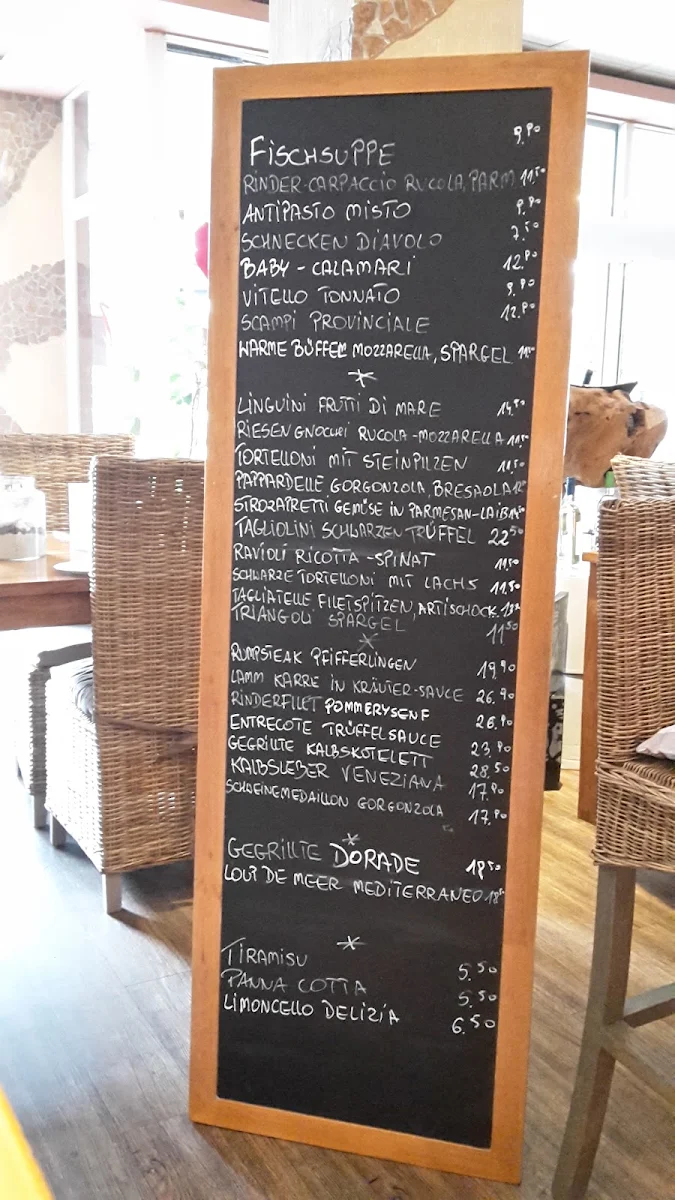 FISCHSUPPE 9.90
RINDER-CARPACCIO RUCOLA, PARM. 11.50
ANTIPASTO MISTO 9.90
SCHNECKEN DIAVOLO 7.50
BABY-CALAMARI 12.90
VITELLO TONNATO 9.90
SCAMPI PROVINCIALE 12.90
WARME BÜFFEL MOZZARELLA, SPARGEL
*
LINGUINI FRUTTI DI MARE 14.50
RIESEN GNOCHI RUCOLA-MOZZARELLA
TORTELLONI MIT STEINPILZEN 11.50
PAPPARDELLE GORGONZOLA, BRESAOLA
STROZAPRETTI GEMÜSE IN PARMESAN-LAIB
TAGLIOLINI SCHWARZEN TRÜFFEL 22.50
RAVIOLI RICOTTA-SPINAT 11.50
SCHWARZE TORTELLONI MIT LACHS 11.50
TAGLIATELLE FILETSPITZEN, ARTISCHOCK.
TRIANGOLI SPARGEL 11.50
*
RUMPSTEAK PFIFFERLINGEN 19.90
LAMM KARRE IN KRÄUTER-SAUCE 26.90
RINDERFILET POMMERYSENF 26.90
ENTRECOTE TRÜFFELSAUCE 23.90
GEGRILLTE KALBSKOTELETT 28.50
KALBSLEBER VENEZIANA 17.90
SCHWEINEMEDAILLON GORGONZOLA 17.90
*
GEGRILLTE DORADE 18.50
LOUP DE MEER MEDITERRANEO
*
TIRAMISU 5.50
PANNA COTTA 5.50
LIMONCELLO DELIZIA 6.50